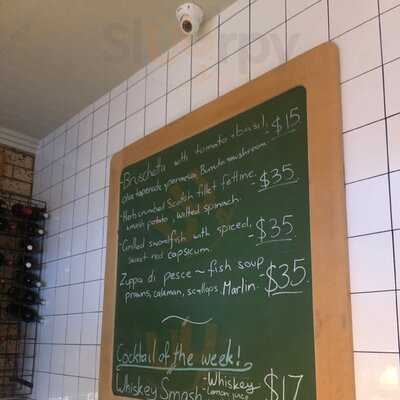 Sluurpy
- Bruschetta with tomato + basil, $15
olive tapenade + parmesan, Burrata mushroom.
- Herb crumbed Scotch fillet fettine, $35
smash potato, wilted spinach.
- Grilled swordfish with spiced, - $35
sweet red capsicum.
Zuppa di pesce ~ fish soup - $35
prawns, calamari, scallops, Marlin.
Cocktail of the week!
Whiskey Smash - Whiskey $17
- Lemon juice